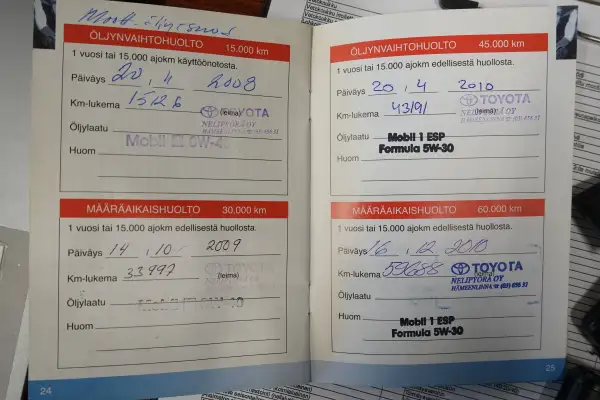 ÖLJYNVAIHTOHUOLTO 15.000 km
1 vuosi tai 15.000 ajokm käyttöönotosta.
Päiväys 20 , 4 2008
Km-lukema 15126
TOYOTA
(leima)
NELIPYÖRÄ OY
Öljylaatu
Mobil 5W-40
Huom
MÄÄRÄAIKAISHUOLTO 30.000 km
1 vuosi tai 15.000 ajokm edellisestä huollosta.
Päiväys 14 , 10 2009
Km-lukema 33997
(leima)
Öljylaatu
Huom
24
ÖLJYNVAIHTOHUOLTO 45.000 km
1 vuosi tai 15.000 ajokm edellisestä huollosta.
Päiväys 20 , 4 2010
Km-lukema 43191
TOYOTA
(leima)
NELIPYÖRÄ OY
Öljylaatu Mobil 1 ESP
Formula 5W-30
Huom
MÄÄRÄAIKAISHUOLTO 60.000 km
1 vuosi tai 15.000 ajokm edellisestä huollosta.
Päiväys 16 , 12 2010
Km-lukema 59658
TOYOTA
NELIPYÖRÄ OY
HÄMEENLINNA
Öljylaatu
Huom
Mobil 1 ESP
Formula 5W-30
25